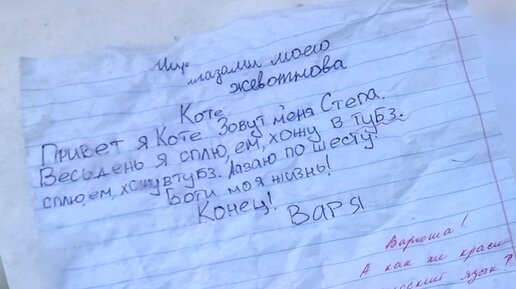 Мир глазами моего
жевотнова
Коте
Привет я Коте. Зовут меня Степа.
Весьдень я сплю, ем, хожу в тубз.
сплю, ем, хожу втубз. Лазаю по шесту.
Воти моя жизнь!
Конец!
ВАРЯ
Варюша!
А как же краси
язык?